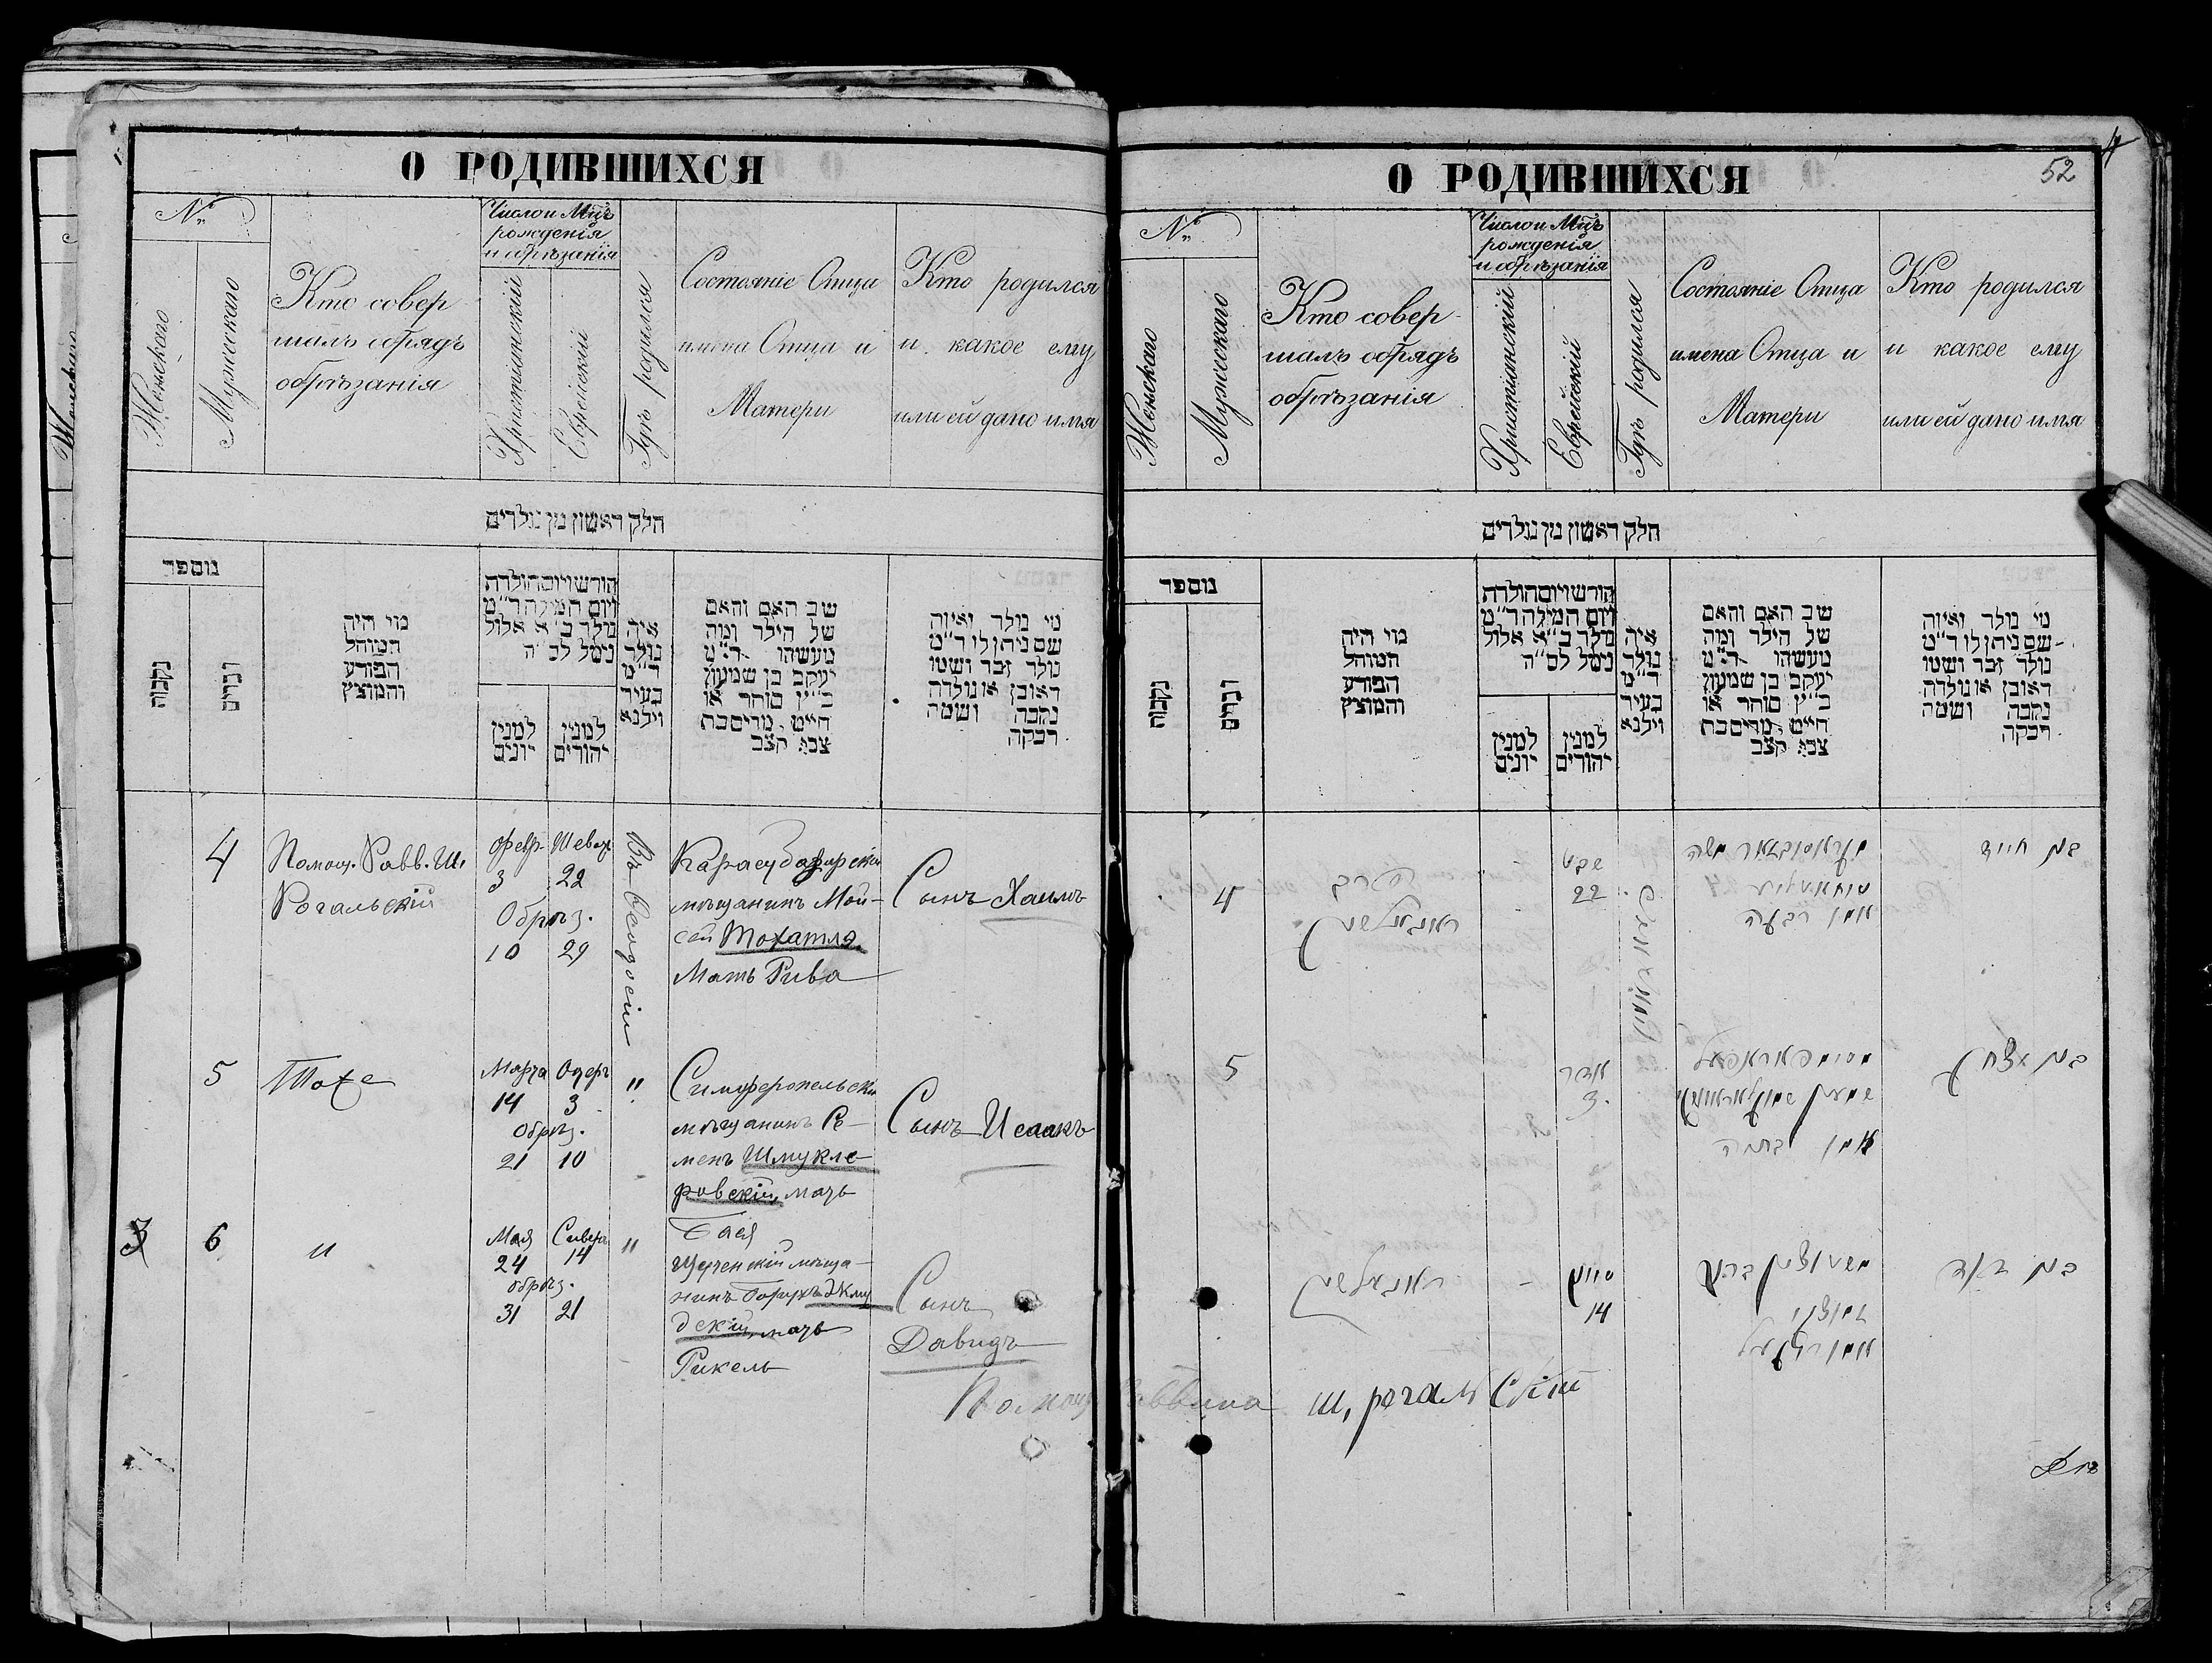 О РОДИВШИХСЯ
№
Женскаго
Мужескаго
Кто совер
шалъ обрядъ
обрѣзанія
Число и Мцъ
рожденія
и обрѣзанія
Христіанскій
Еврейскій
Гдѣ родился
Состояніе Отца
имена Отца и
Матери
Кто родился
и какое ему
или ей дано имя
חלק ראשון מן נולדים
מספר
נקבות
זכרים
מי היה
המוהל
הפורע
והמוצץ
חודש ויום הולדת
ויום המילה ד״מ
נולד כ״א אלול
נימל לכ״ה
למנין
יונים
למנין
יהודים
איה
נולד
ד״מ
בעיר
וילנא
שב האם והאם
של הילד ומה
מעשהו ד״מ
יעקב בן שמעון
כ״ץ סוחר או
חייט מרים בת
צבי קצב
מי נולד ואיזה
שם ניתן לו ד״מ
נולד זכר ושמו
ראובן או נולדה
נקבה ושמה
רבקה
4
Помощ. Равв. Ш.
Рогальскій
Февр. Шеват
3 22
Обрѣз.
10 29
Въ Ѳеодосіи
Карасубазарскій
мѣщанинъ Мой-
сей Тохатля
Мать Рива
Сынъ Хаимъ
5
Тоже
Марта Одеръ
14 3
Обрѣз.
21 10
"
Симферопольскій
мѣщанинъ
менъ Шмукле-
ровскій, мать
Бася
Сынъ Исаакъ
3 6
"
Мая Сивета
24 14
обрѣз.
31 21
"
мѣща-
нинъ
дскій, мать
Рикель
Сынъ
Давидъ
О РОДИВШИХСЯ
52
4
№
Женскаго
Мужескаго
Кто совер
шалъ обрядъ
обрѣзанія
Число и Мцъ
рожденія
и обрѣзанія
Христіанскій
Еврейскій
Гдѣ родился
Состояніе Отца
имена Отца и
Матери
Кто родился
и какое ему
или ей дано имя
חלק ראשון מן נולדים
מספר
נקבות
זכרים
מי היה
המוהל
הפורע
והמוצץ
חודש ויום הולדת
ויום המילה ד״מ
נולד כ״א אלול
נימל לכ״ה
למנין
יונים
למנין
יהודים
איה
נולד
ד״מ
בעיר
וילנא
שב האם והאם
של הילד ומה
מעשהו ד״מ
יעקב בן שמעון
כ״ץ סוחר או
חייט מרים בת
צבי קצב
מי נולד ואיזה
שם ניתן לו ד״מ
נולד זכר ושמו
ראובן או נולדה
נקבה ושמה
רבקה
4
ראגאלסקי
שבט
22
קאראסובאזאר משה
אמו רבקה
בן חיים
5
אדר
3
סימפאראפאל
אמו בתיה
בן יצחק
ראגאלסקי
סיון
14
בן דוד
Помощ Раввина Ш. Рогальскій